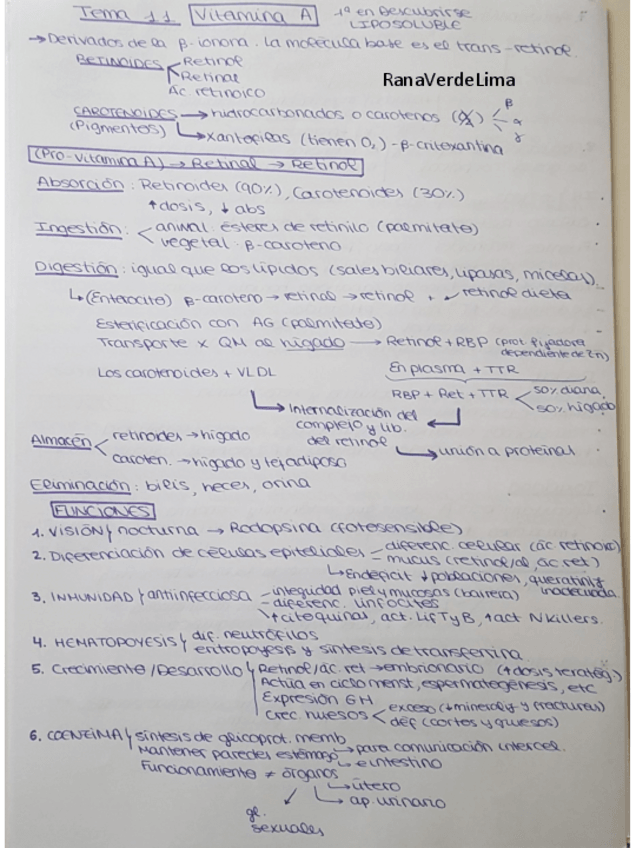 Tema 11 Vitamina A 1ª en Descubrirse
LIPOSOLUBLE
→Derivados de la β-ionona. La molécula base es el trans-retinol.
RETINOIDES Retinol
Retinal
Ac retinoico
RanaVerdeLima
CAROTENOIDES → hidrocarbonados o carotenos β
(Pigmentos) α
γ
xantofilas (tienen O,) - β-criptoxantina
(Pro-vitamina A) → Retinal → Retinol
Absorción: Retinoides (90%), Carotenoides (30%)
↑dosis, ↓abs
Ingestión: animal: ésteres de retinilo (palmitato)
vegetal: β-caroteno
Digestión: igual que los lípidos (sales biliares, lipasas, micelas)
↳(Enterocito) β-caroteno → retinal → retinol + retinol dieta
Esterificación con AG (palmitato)
Transporte x QM al hígado → Retinol + RBP (prot. fijadora
dependiente de Zn)
Los carotenoides + VLDL En plasma + TTR
RBP + Ret + TTR 50% diana
50% hígado
Internalización del
complejo y lib.
del retinol → unión a proteínas
Almacén retinoides → hígado
caroten. → hígado y tej adiposo
Eliminación: bilis, heces, orina
FUNCIONES
1. VISIÓN/nocturna → Rodopsina (fotosensible)
2. Diferenciación de células epiteliales = diferenc. celular (ác retinoico)
mucus (retinol/al, ác ret)
↳En déficit ↓poblaciones, queratiniz inadecuada
3. INMUNIDAD/antiinfecciosa = integridad piel y mucosas (barrera)
diferenc. linfocitos
↑citoquinas, act. Linf T y B, ↑act N killers.
4. HEMATOPOYESIS/dif. neutrófilos
eritropoyesis y síntesis de transferrina
5. Crecimiento/Desarrollo Retinol/ác. ret → embrionario (↑dosis teratóg.)
Actúa en ciclo menst, espermatogénesis, etc
Expresión GH
Crec. huesos exceso (↓mineraliz. y fracturas)
déf (cortos y gruesos)
6. COENZIMA/síntesis de glicoprot. memb
↳para comunicación intercel.
Mantener paredes estómago e intestino
Funcionamiento ≠ órganos
útero
ap. urinario
gl.
sexuales